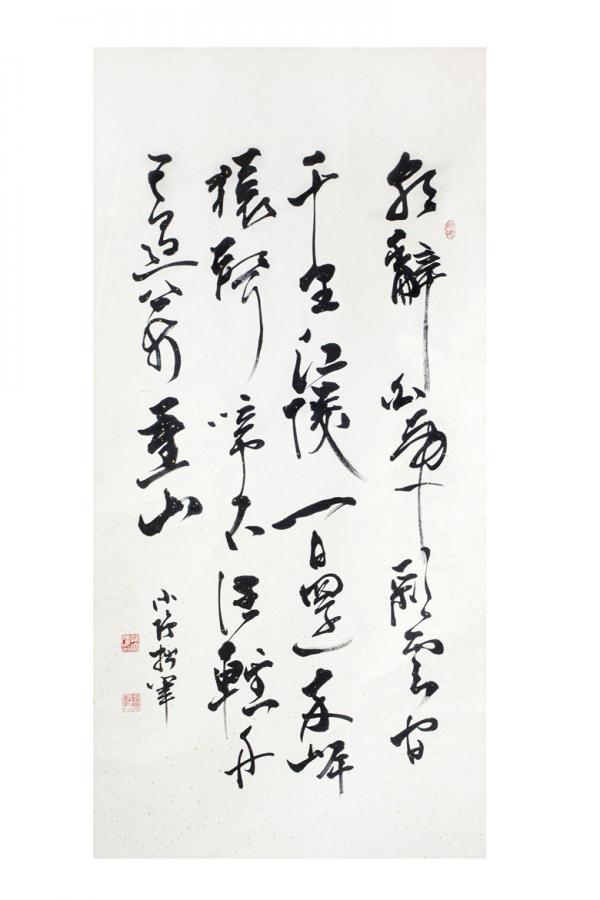 朝辭白帝彩雲間
千里江陵一日還兩岸
猿聲啼不住輕舟
已過萬重山
拙筆